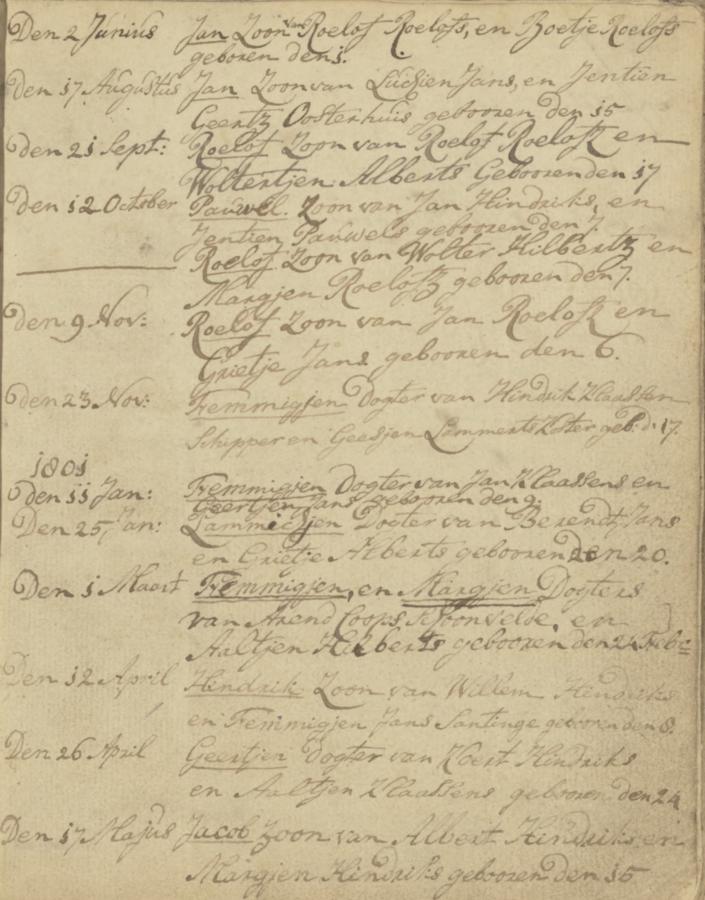 Den 2 Junius Jan Zoon van Roelof Roelofs, en Boetje Roelofs
geboren den 1.
den 17 Augustus Jan Zoon van Luchien Jans, en Jentien
Geertz Oosterhuis geboozen den 15
den 21 Sept: Roelof Zoon van Roelof Roelofz en
Woltertjen Alberts Geboozen den 17
den 12 October Pauwel. Zoon van Jan Hindriks, en
Jentien Pauwels geboozen den 7.
Roelof Zoon van Wolter Hilbertz en
Margjen Roelofz geboozen den 7.
den 9 Nov: Roelof Zoon van Jan Roelofz en
Grietje Jans geboozen den 6.
den 23 Nov: Femmigjen Dogter van Hindrik Klaassen
Schipper en Geesjen Lammerts Koster geb: d: 17.
1801
den 11 Jan: Femmigjen Dogter van Jan Klaassens en
Geertjen Jans geboozen den 9.
Den 25 Jan: Lammichjen Dogter van Berendt Jans
en Grietje Alberts geboozen den 20.
Den 1 Maart Femmigjen, en Margjen Dogters
van Arend Coops Schoonvelde, en
Aaltjen Hilberts geboozen den 24 Feb:
Den 12 April Hindrik Zoon van Willem Hendriks
en Femmigjen Jans Santinge geboozen den 8.
Den 26 April Geertjen Dogter van Koert Hindriks
en Aaltjen Klaassens geboozen den 24
Den 17 Majus Jacob Zoon van Albert Hindriks en
Margjen Hindriks geboozen den 15